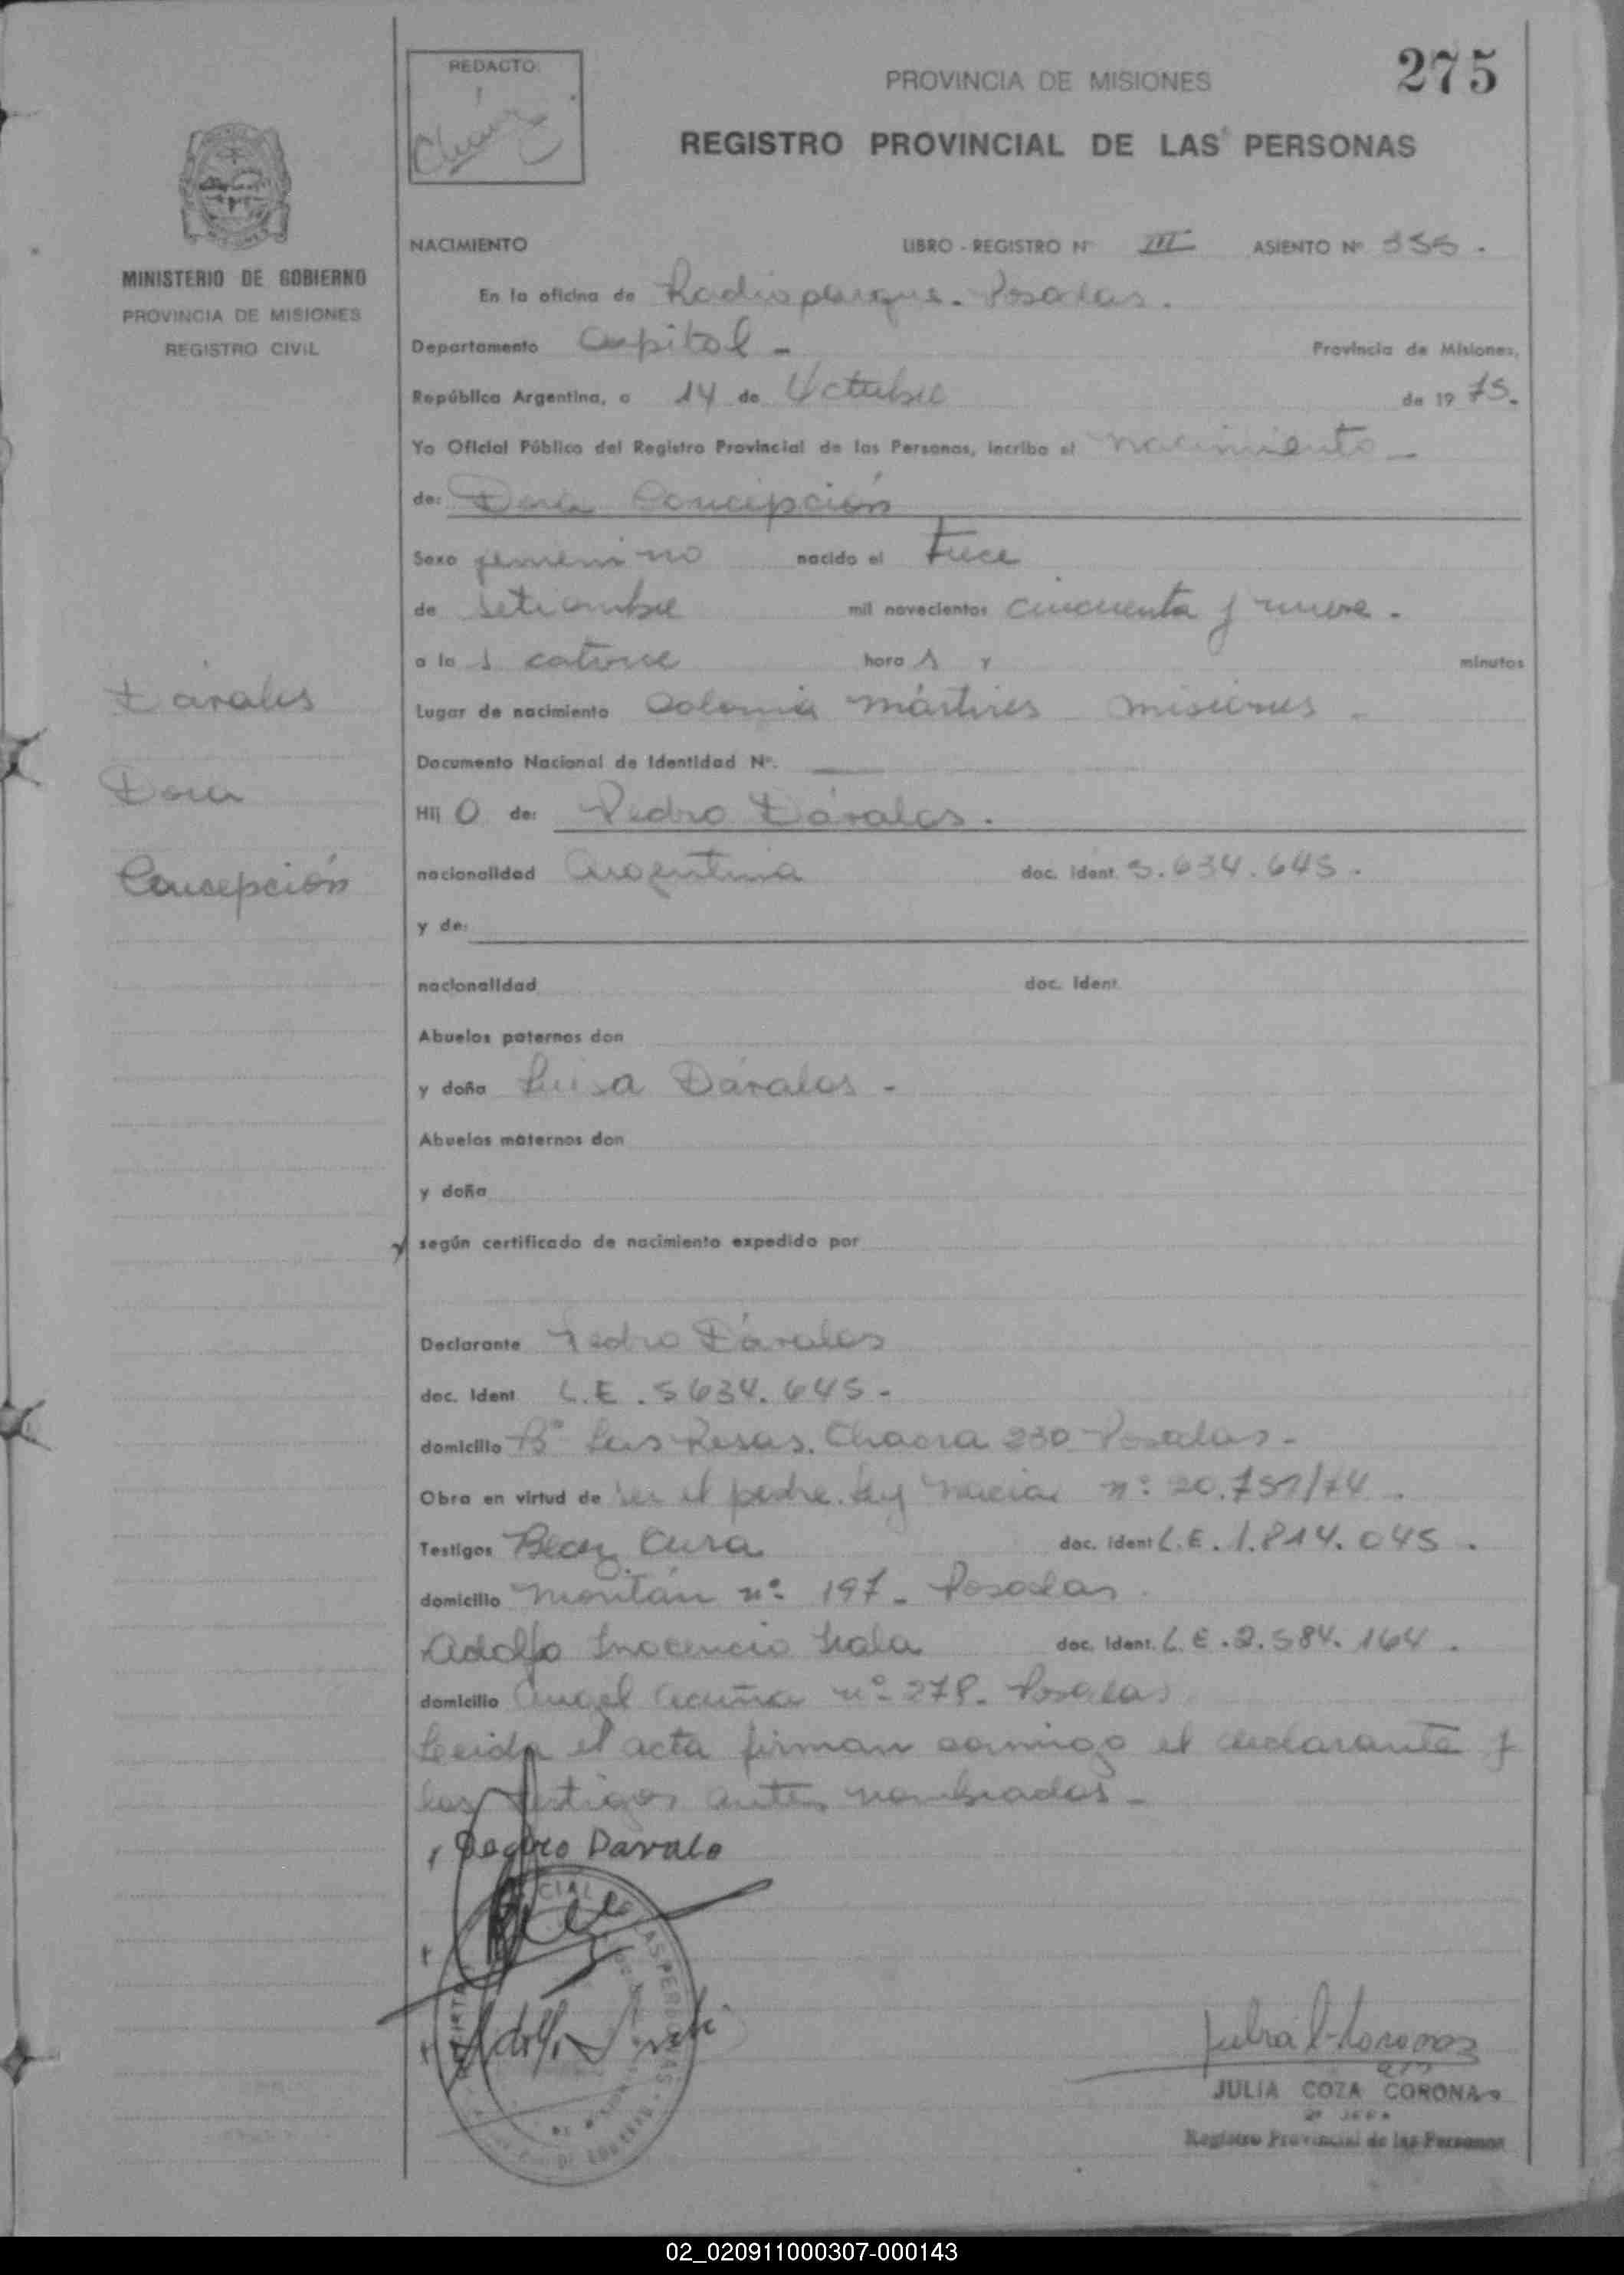 275
REDACTO
Chávez
PROVINCIA DE MISIONES
REGISTRO PROVINCIAL DE LAS PERSONAS
MINISTERIO DE GOBIERNO
PROVINCIA DE MISIONES
REGISTRO CIVIL
NACIMIENTO LIBRO - REGISTRO Nº III ASIENTO Nº 555 .
En la oficina de Radioparque - Posadas .
Departamento Capital - Provincia de Misiones,
República Argentina, a 14 de Octubre de 19 75.
Yo Oficial Público del Registro Provincial de las Personas, incribo el nacimiento -
de: Dora Concepción
Sexo femenino nacido el trece
de setiembre mil novecientos cincuenta y nueve .
a la s catorce hora s y minutos
Lugar de nacimiento Colonia Mártires Misiones -
Documento Nacional de Identidad Nº. —
Hij o de: Pedro Dávalos .
nacionalidad Argentina doc. ident. 5.634.645 .
y de:
nacionalidad doc. ident.
Abuelos paternos don
y doña Luisa Dávalos -
Abuelos maternos don
y doña
según certificado de nacimiento expedido por
Declarante Pedro Dávalos
doc. ident. L.E. 5634.645 -
domicilio Bº Las Rosas. Chacra 230 Posadas -
Obra en virtud de ser el padre. Ley nº: 20.751/74 .
Testigos Cura doc. ident L.E. 1.814.045 .
domicilio nº 197 - Posadas .
Adolfo Inocencio doc. ident. L.E. 2.584.164 .
domicilio Angel Acuña nº 278 - Posadas
Leida el acta firman conmigo el declarante y
los testigos antes nombrados -
Pedro Davalo
Dávalos
Dora
Concepción
JULIA COZA CORONA
2º JEFA
Registro Provincial de las Personas
02_020911000307-000143